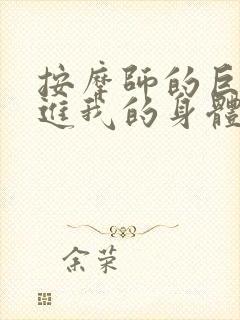 按摩師的巨
進我的身體
余荣